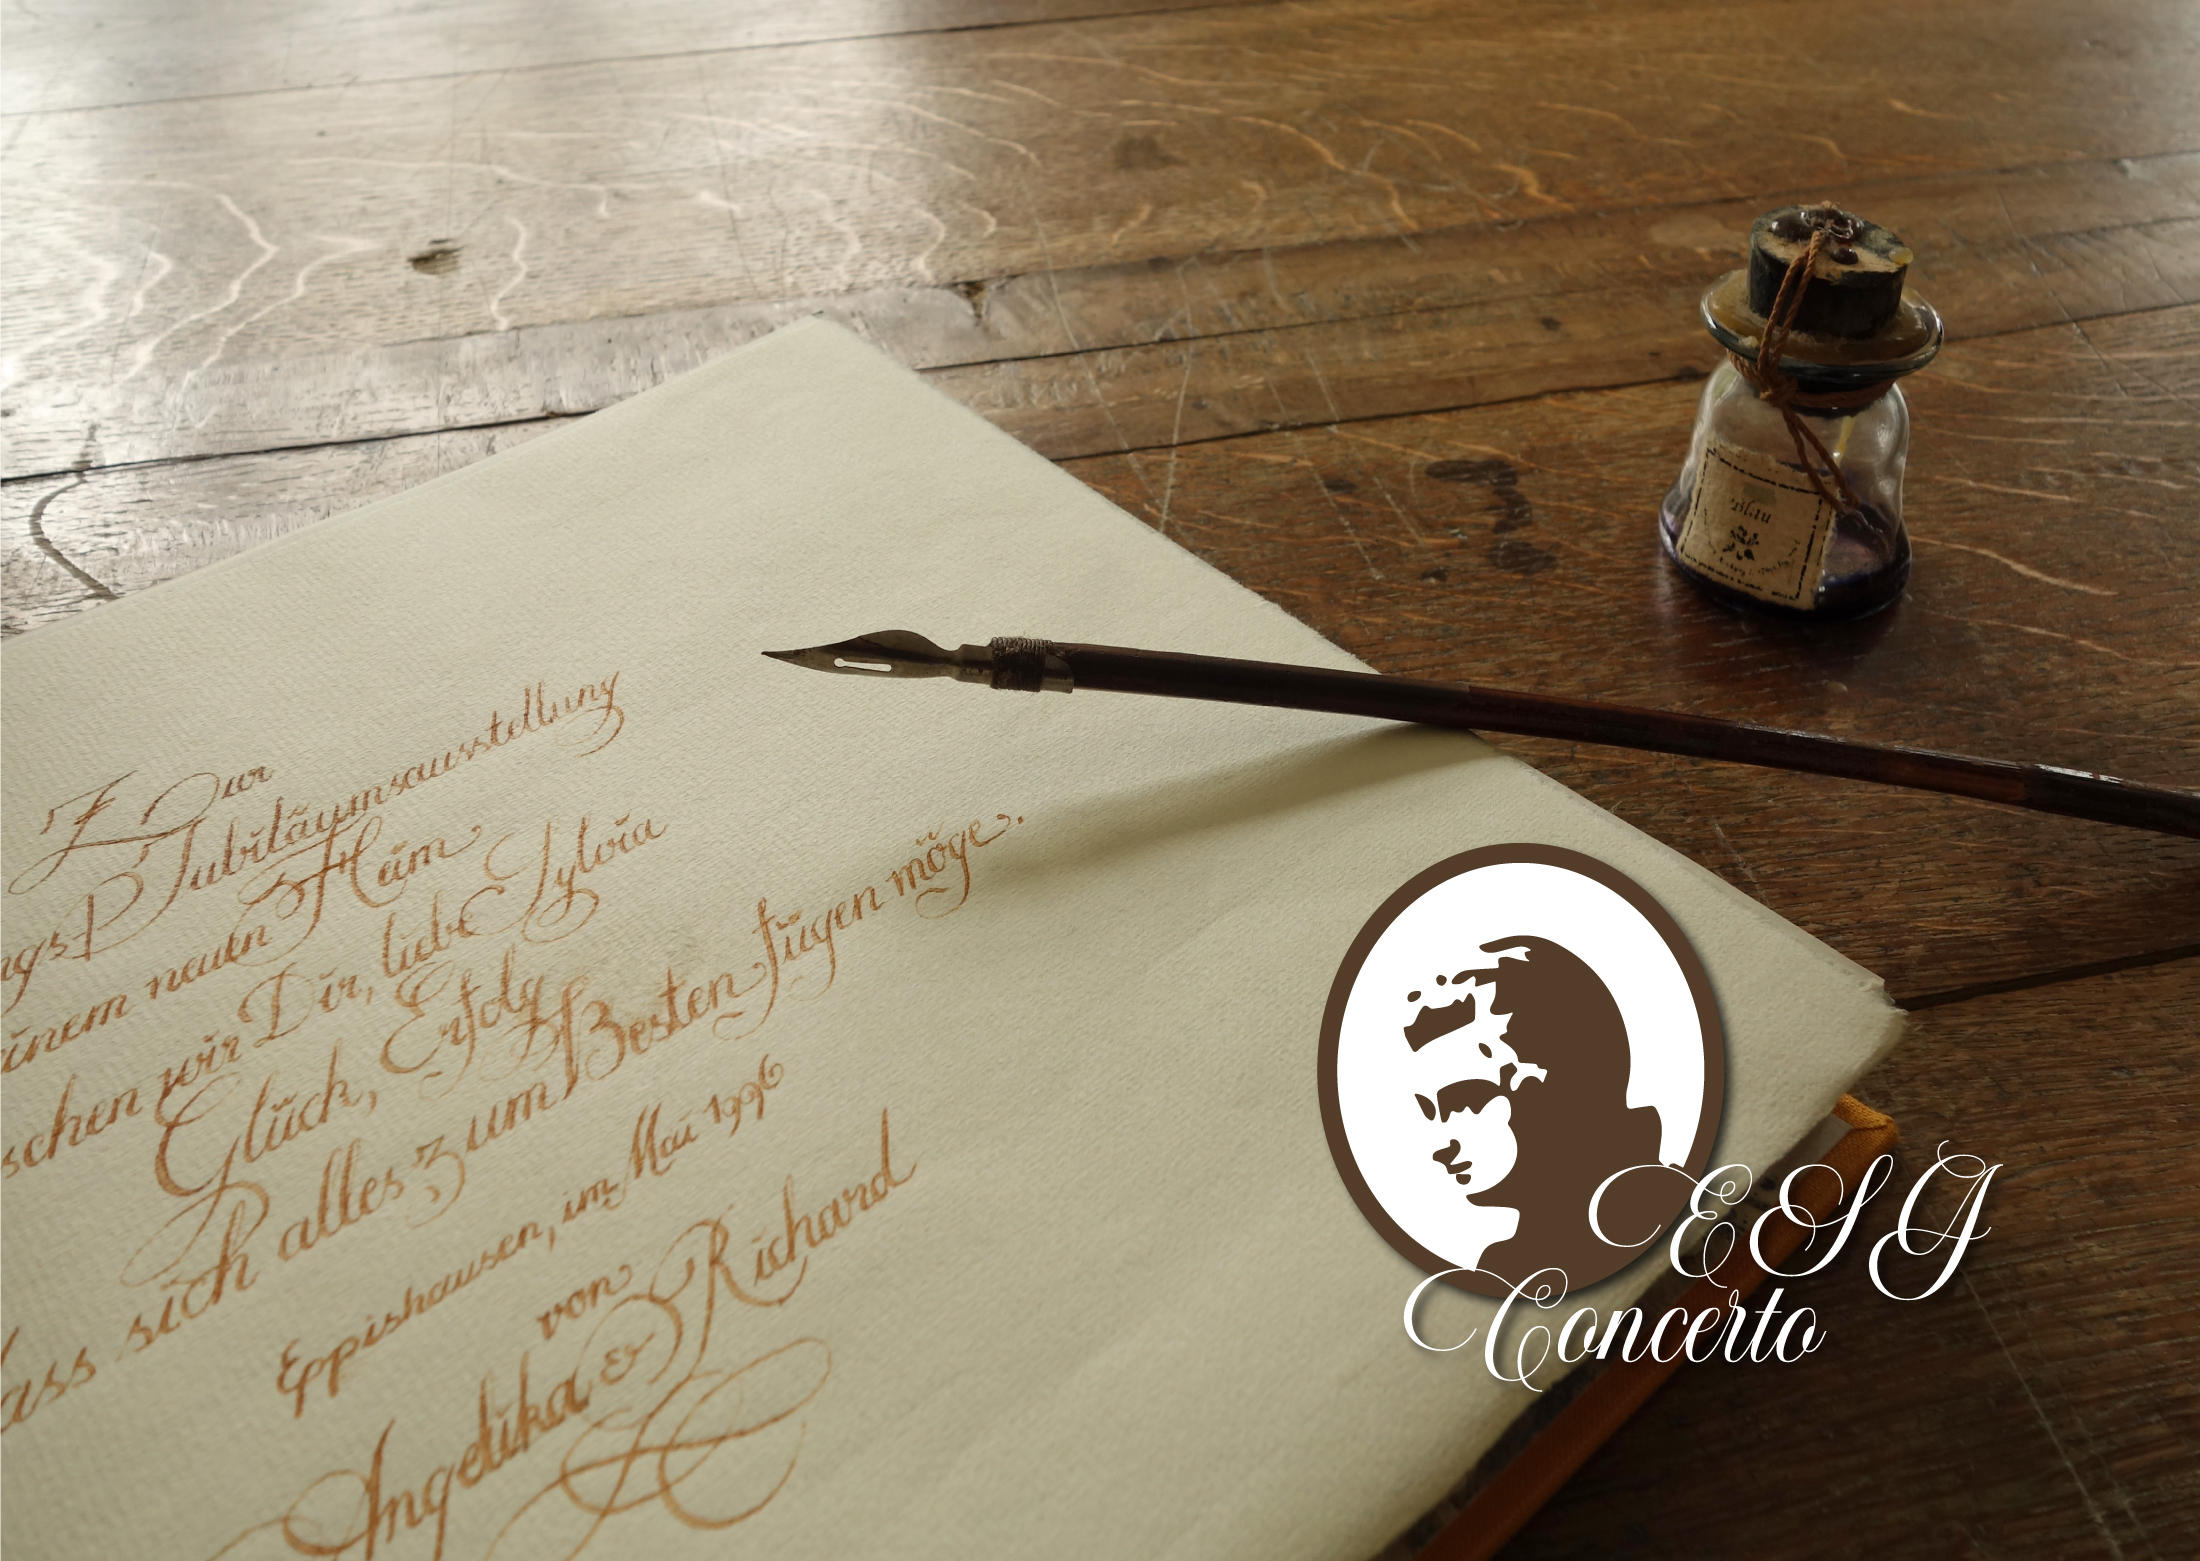 Zur
ngs Jubiläumsausstellung
einem neuen Heim
schen wir Dir, liebe Sylvia
Glück, Erfolg
dass sich alles zum Besten fügen möge.
Eppishausen, im Mai 1996
von
Angelika & Richard
Blau
ESG
Concerto